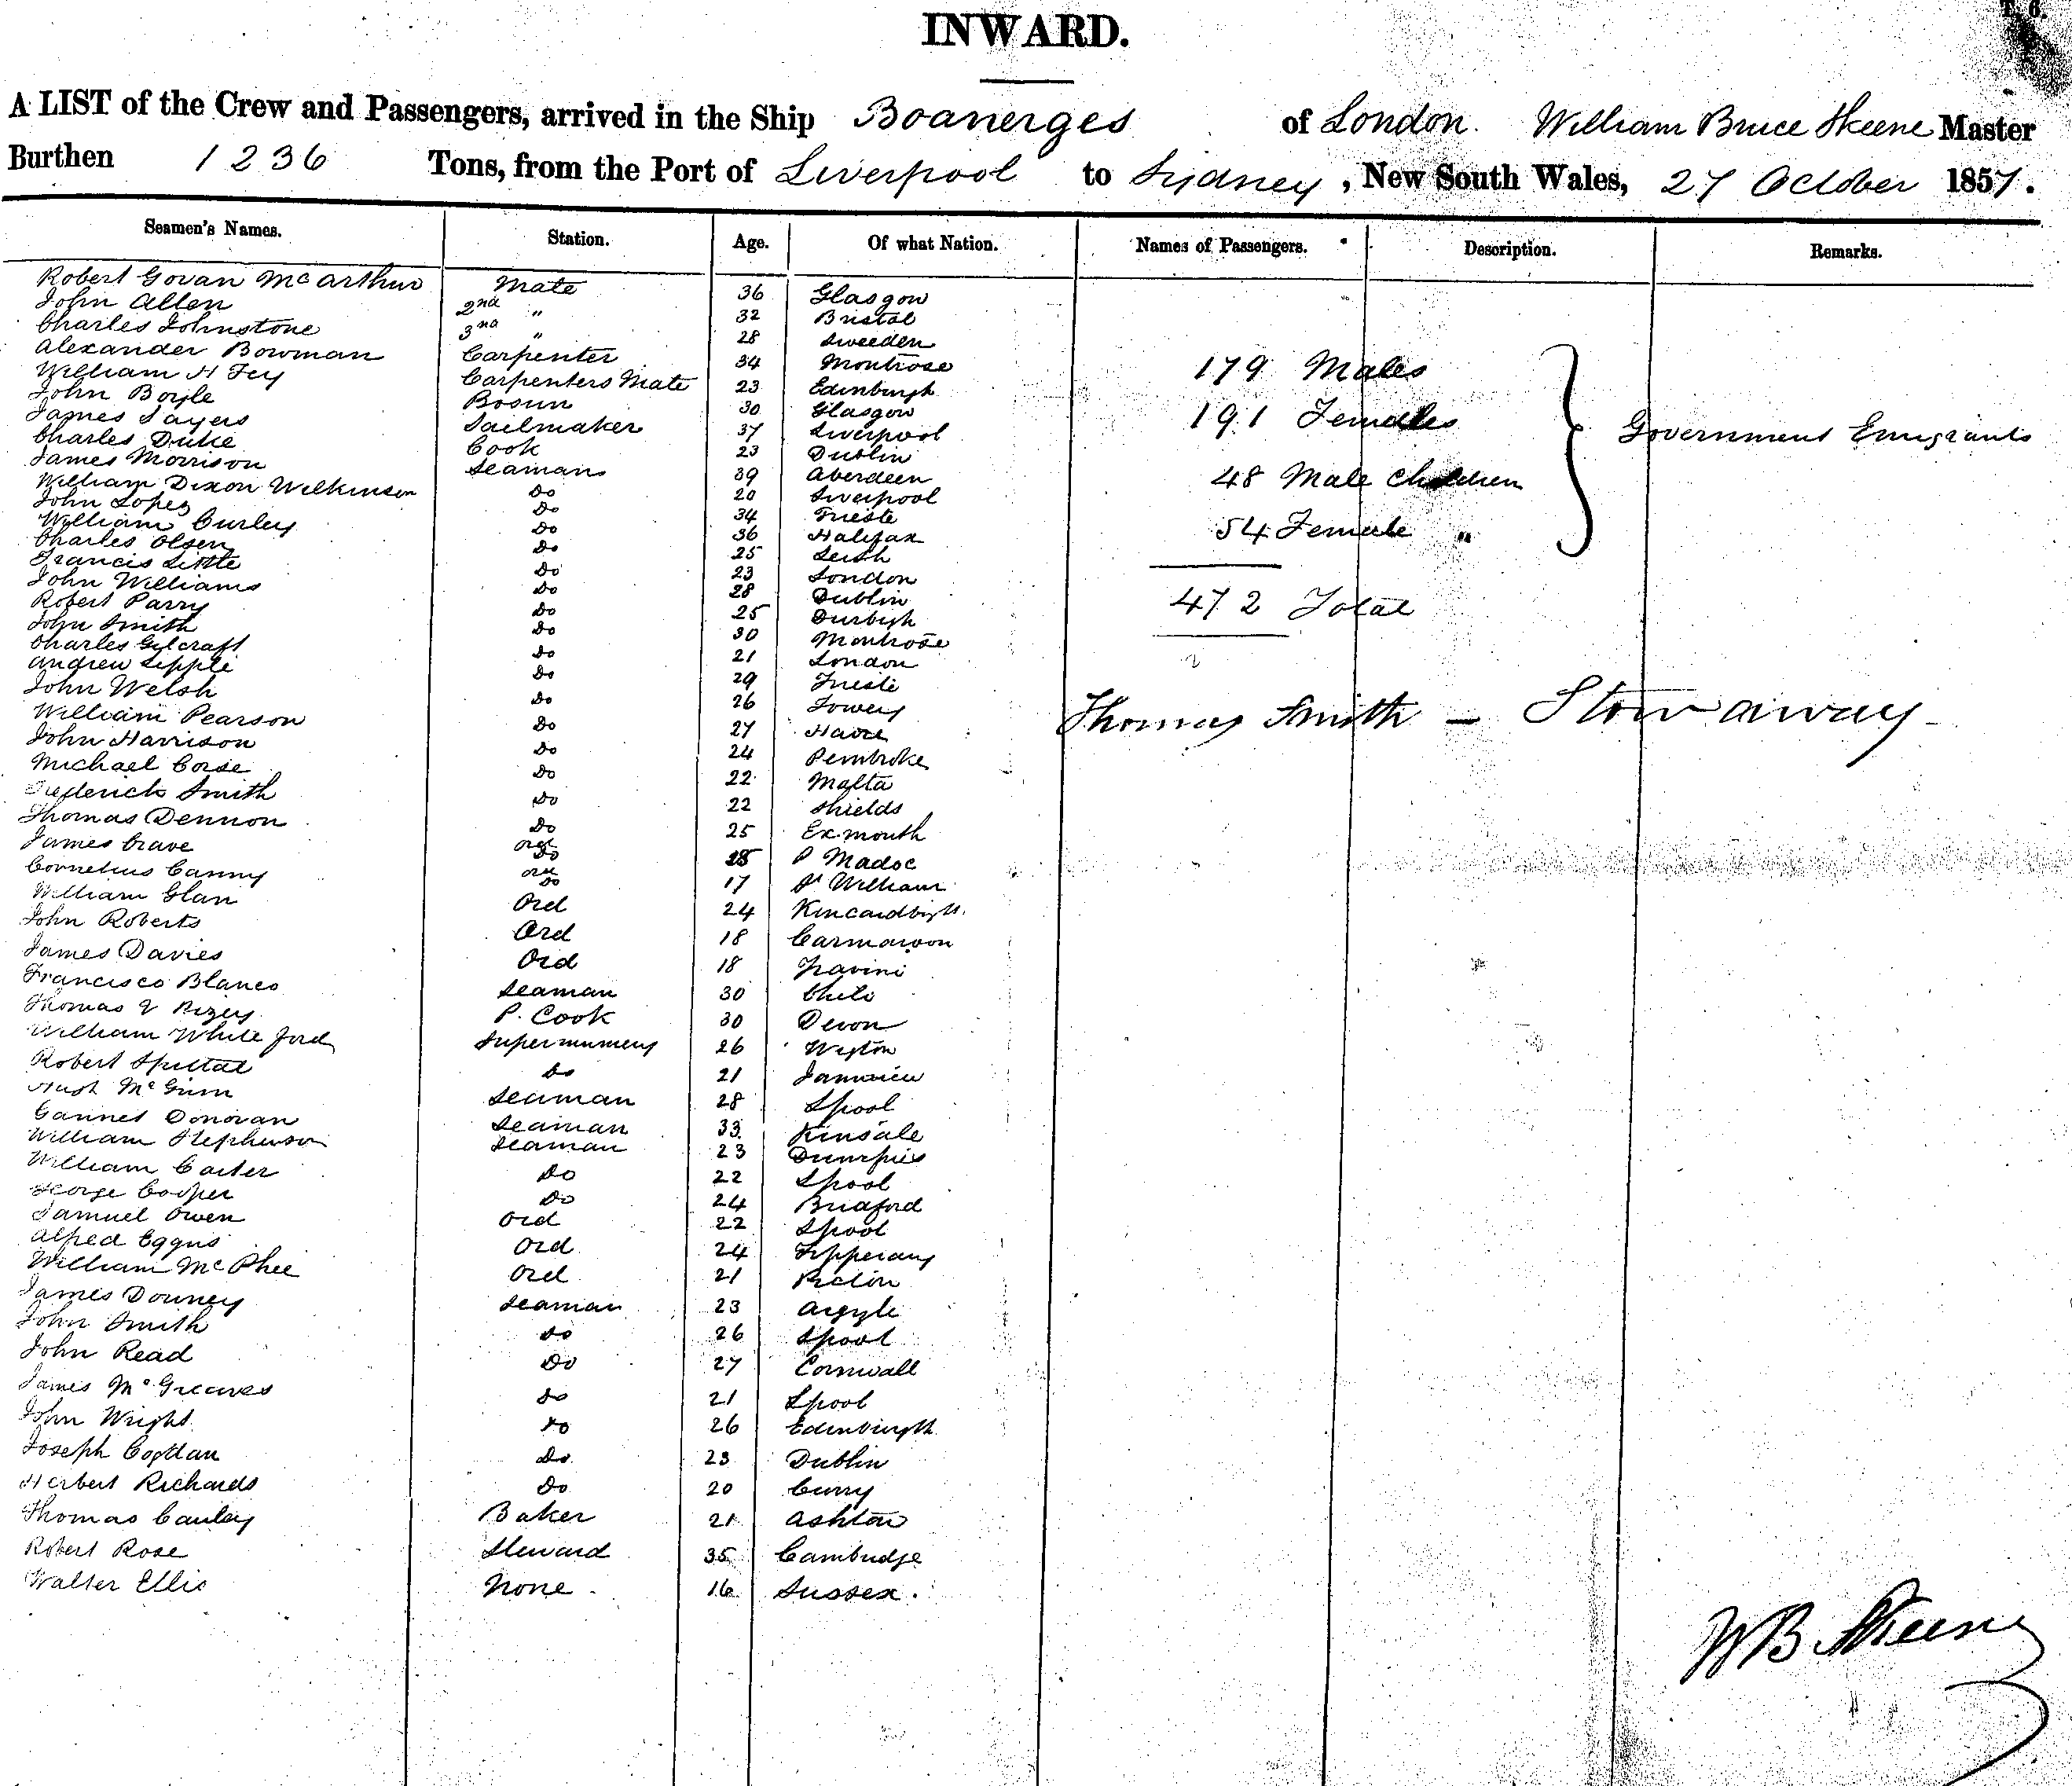 T. 6.
INWARD.
A LIST of the Crew and Passengers, arrived in the Ship Boanerges of London. William Bruce Skeene Master
Burthen 1236 Tons, from the Port of Liverpool to Sydney, New South Wales, 27 October 1857.
Seamen's Names. Station. Age. Of what Nation. Names of Passengers. Description. Remarks.
Robert Govan McArthur Mate 36 Glasgow
John Allen 2nd " 32 Bristol
Charles Johnstone 3rd " 28 Sweeden
Alexander Bowman Carpenter 34 Montrose
William H Fey Carpenters Mate 23 Edinburgh
John Boyle Bosun 30 Glasgow
James Sayers Sailmaker 37 Liverpool
Charles Duke Cook 23 Dublin
James Morrison Seamans 39 Aberdeen
William Dixon Wilkinson Do 20 Liverpool
John Lopez Do 34 Trieste
William Curley Do 36 Halifax
Charles Olsen Do 25 Leith
Francis Little Do 23 London
John Williams Do 28 Dublin
Robert Parry Do 25 Durbigh
John Smith Do 30 Montrose
Charles Gilcraft Do 21 London
Andrew Sepple Do 29 Trieste
John Welsh Do 26 Fowey
William Pearson Do 27 Havre
John Harrison Do 24 Pembroke
Michael Corse Do 22 Malta
Frederick Smith Do 22 Shields
Thomas Dennon Do 25 Exmouth
James Crave Ord Do 18 P Madoc
Cornelius Canny Ord Do 17 Ft William
William Glan Ord 24
John Roberts Ord 18 Carnarvon
James Davies Ord 18
Francisco Blanco Seaman 30 Chili
Thomas P. Cook 30 Devon
William White ford Supernumery 26 Wigton
Robert Spittal Do 21 Jamaica
Hugh McGinn Seaman 28 Lpool
Garrnet Donovan Seaman 33 Kinsale
William Stephenson Seaman 23 Dumfries
William Carter Do 22 Lpool
George Cooper Do 24 Bradford
Samuel Owen Ord 22 Lpool
Alfred Eggns Ord 24 Tipperary
William McPhee Ord 21 Pictou
James Downey Seaman 23 Argyle
John Smith Do 26 Lpool
John Read Do 27 Cornwall
James McGreaves Do 21 Lpool
John Wright Do 26 Edinburgth
Joseph Coghlan Do 23 Dublin
Herbert Richards Do 20 Curry
Thomas Cauley Baker 21 Ashton
Robert Rose Steward 35 Cambridge
Walter Ellis None 16 Sussex.
179 Males
191 Females
48 Male Children
54 Female "
Government Emigrants
472 Total
Thomas Smith – Stowaway
WB Skeene